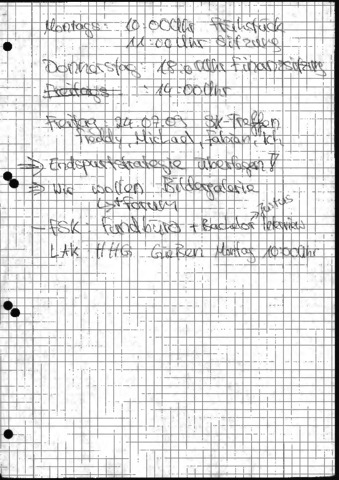 Montags: 10:00 Uhr Frühstück
11:00 Uhr Sitzung
Donnerstag: 18:00 Uhr Finanzsitzung
Freitags : 14:00 Uhr
Freitag 24.07.09 SK-Treffen
Teddy, Michael, Fabian, ich
⇒ Endspurtstrategie überlegen!
⇒ Wir wollen Bildergalerie
↳ + Forum
→ Justus
- FSK: Fundbüro + Bachelor Interview
LAK HHG Gießen Montag 10:00 Uhr